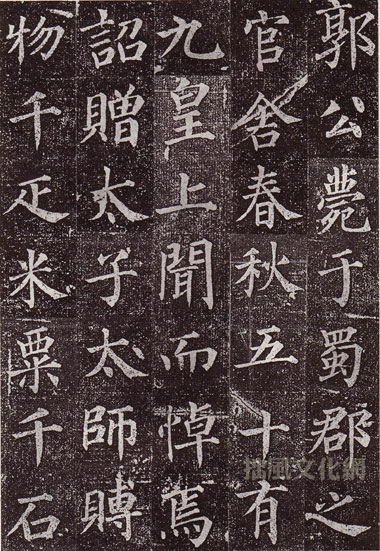 郭公薨于蜀郡之
官舍春秋五十有
九皇上聞而悼焉
詔贈太子太師賻
物千疋米粟千石
風文化網